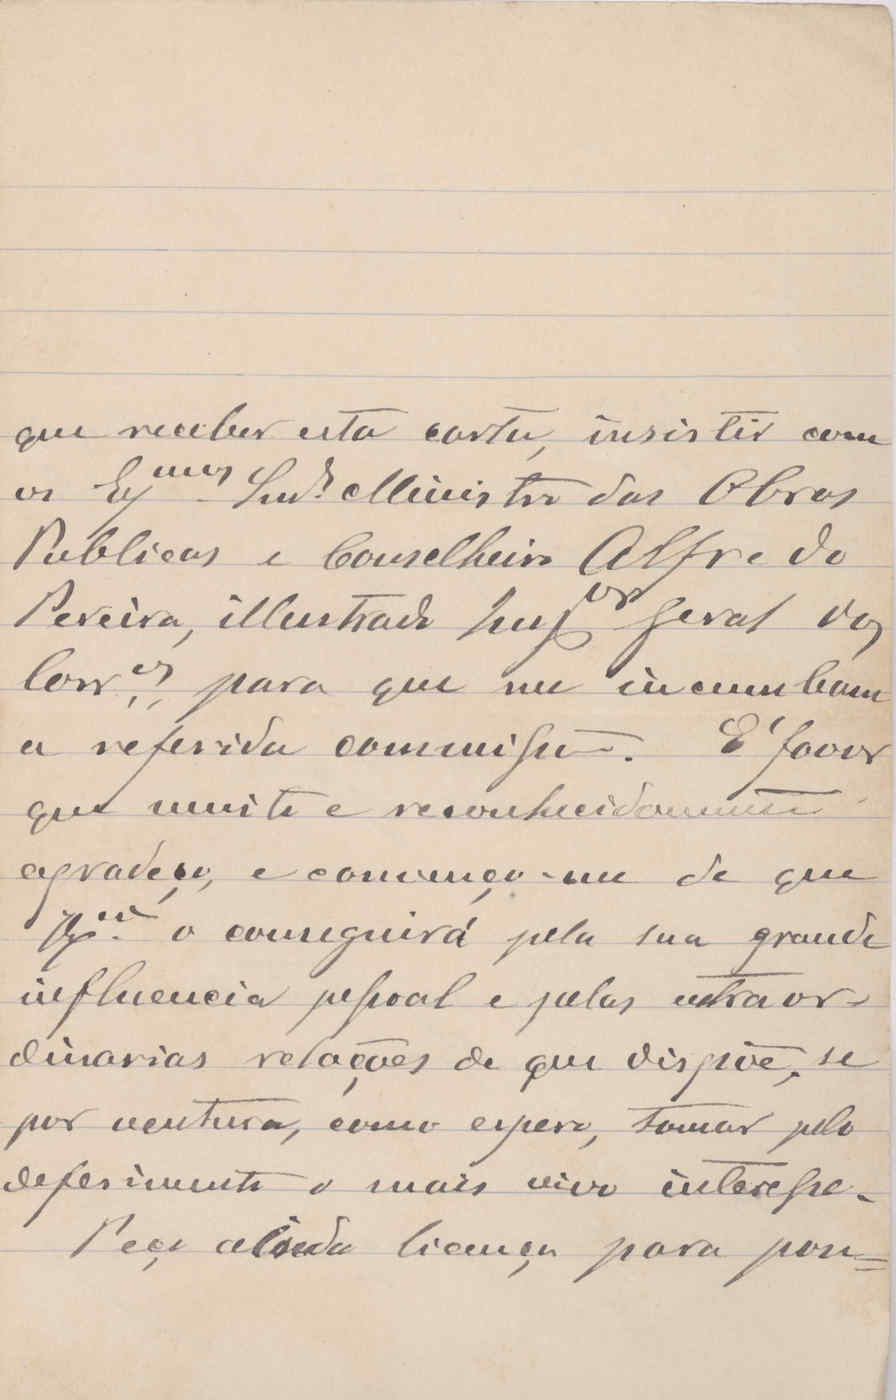 que receber esta carta, insistir com
os Ex.mos Snrs. Ministro das Obras
Publicas e Conselheiro Alfredo
Pereira, illustrado Insp.or Geral dos
Corr.os, para que me incumbam
a referida commissão. É favor
que muito e reconhecidamente
agradeço, e convenço-me de que
V. Ex.cia o conseguirá pela sua grande
influencia pessoal e pelas extraor-
dinarias relações de que dispõe, se
por ventura, como espero, tomar pelo
deferimento o mais vivo interesse.
Peço ainda licença para pon=